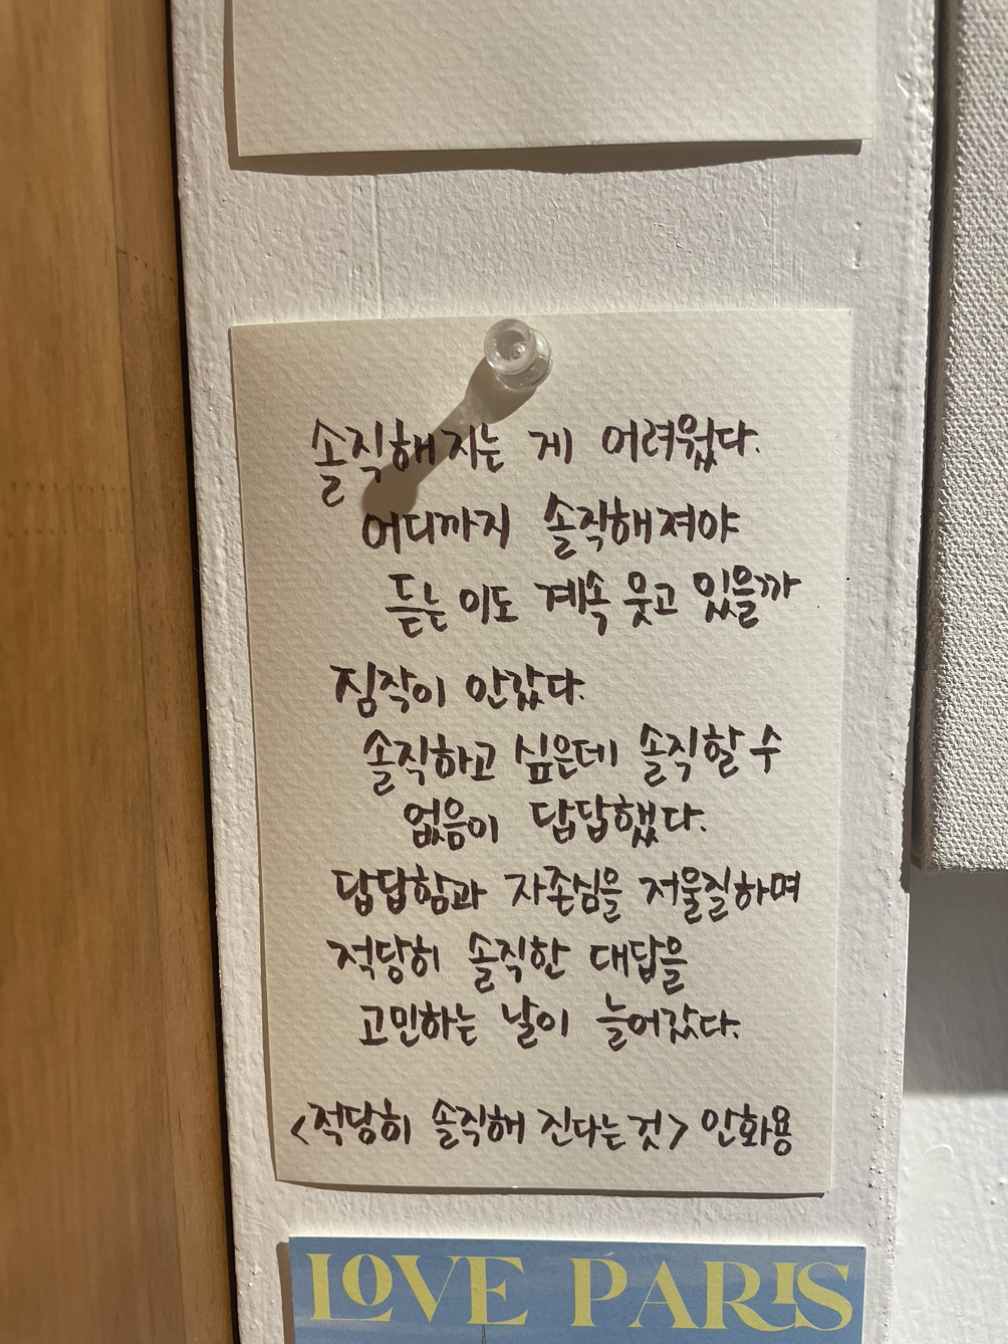 솔직해지는 게 어려웠다.
어디까지 솔직해져야
듣는 이도 계속 웃고 있을까
짐작이 안갔다.
솔직하고 싶은데 솔직할 수
없음이 답답했다.
답답함과 자존심을 저울질하며
적당히 솔직한 대답을
고민하는 날이 늘어갔다.
<적당히 솔직해 진다는 것> 안화용
LOVE PARIS